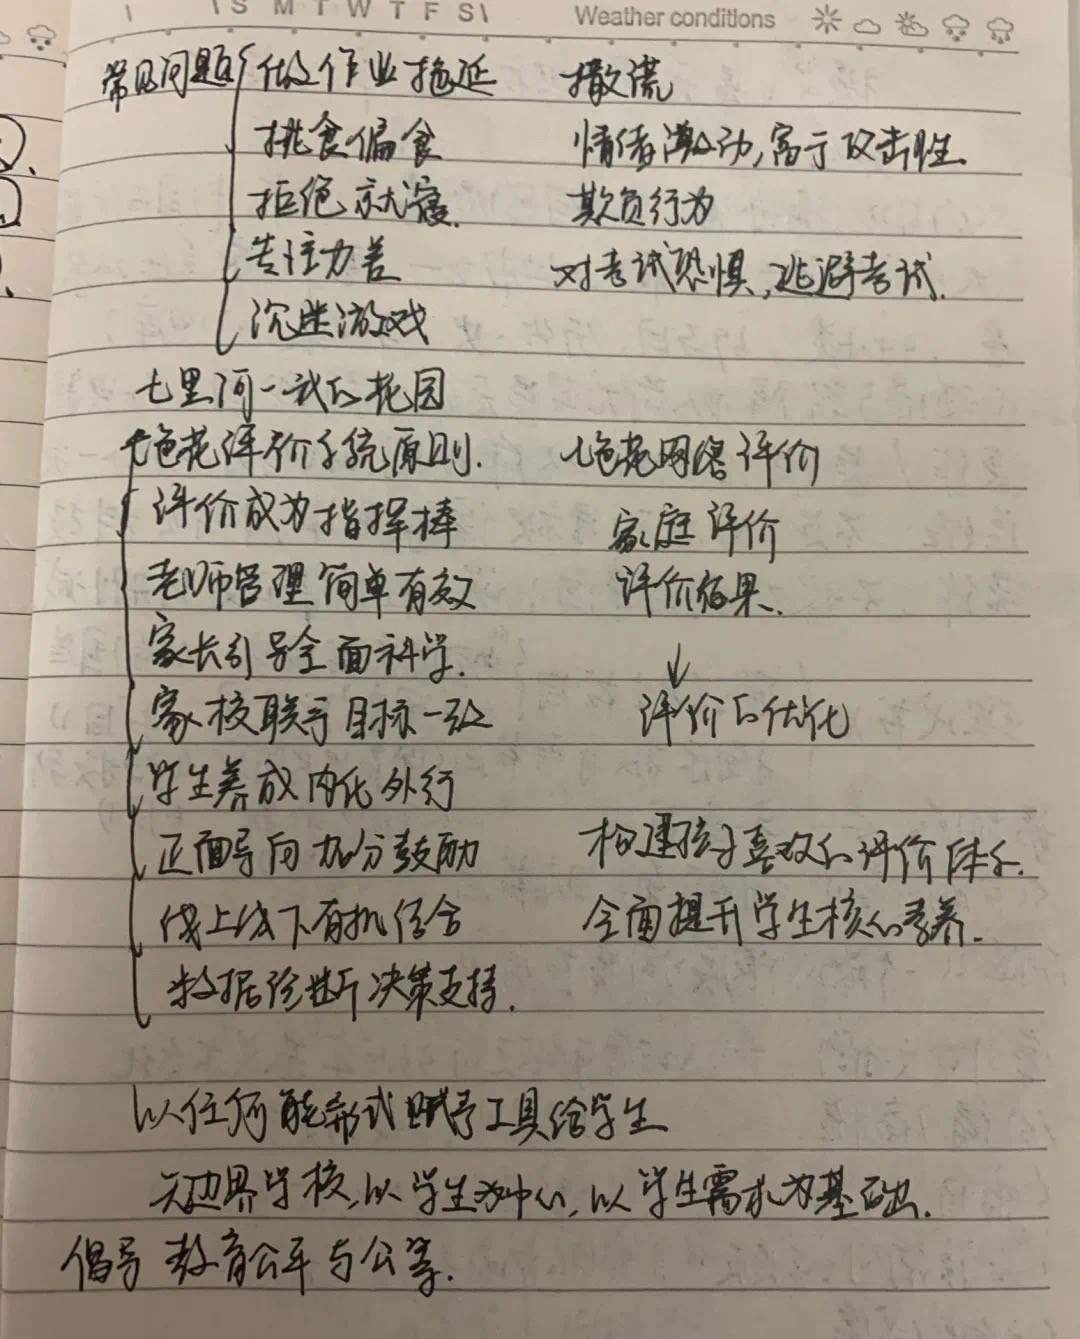 S M T W T F S Weather conditions
常见问题 做作业拖延 撒谎
挑食偏食 情绪激动,富于攻击性.
拒绝就寝. 欺负行为
专注力差 对考试恐惧,逃避考试.
沉迷游戏
七里河一我的花园
七色花评价系统原则. 七色花网络评价
评价成为指挥棒 家庭评价
老师管理简单有效 评价结果.
家长引导全面科学.
家校联手目标一致 评价的优化
学生养成内化外行
正面导向加分鼓励 构建孩子喜欢的评价体系.
线上线下有机结合 全面提升学生核心素养.
数据诊断决策支持.
以任何能形式赋予工具给学生
无边界学校,以学生为中心,以学生需求为基础.
倡导教育公平与公等.